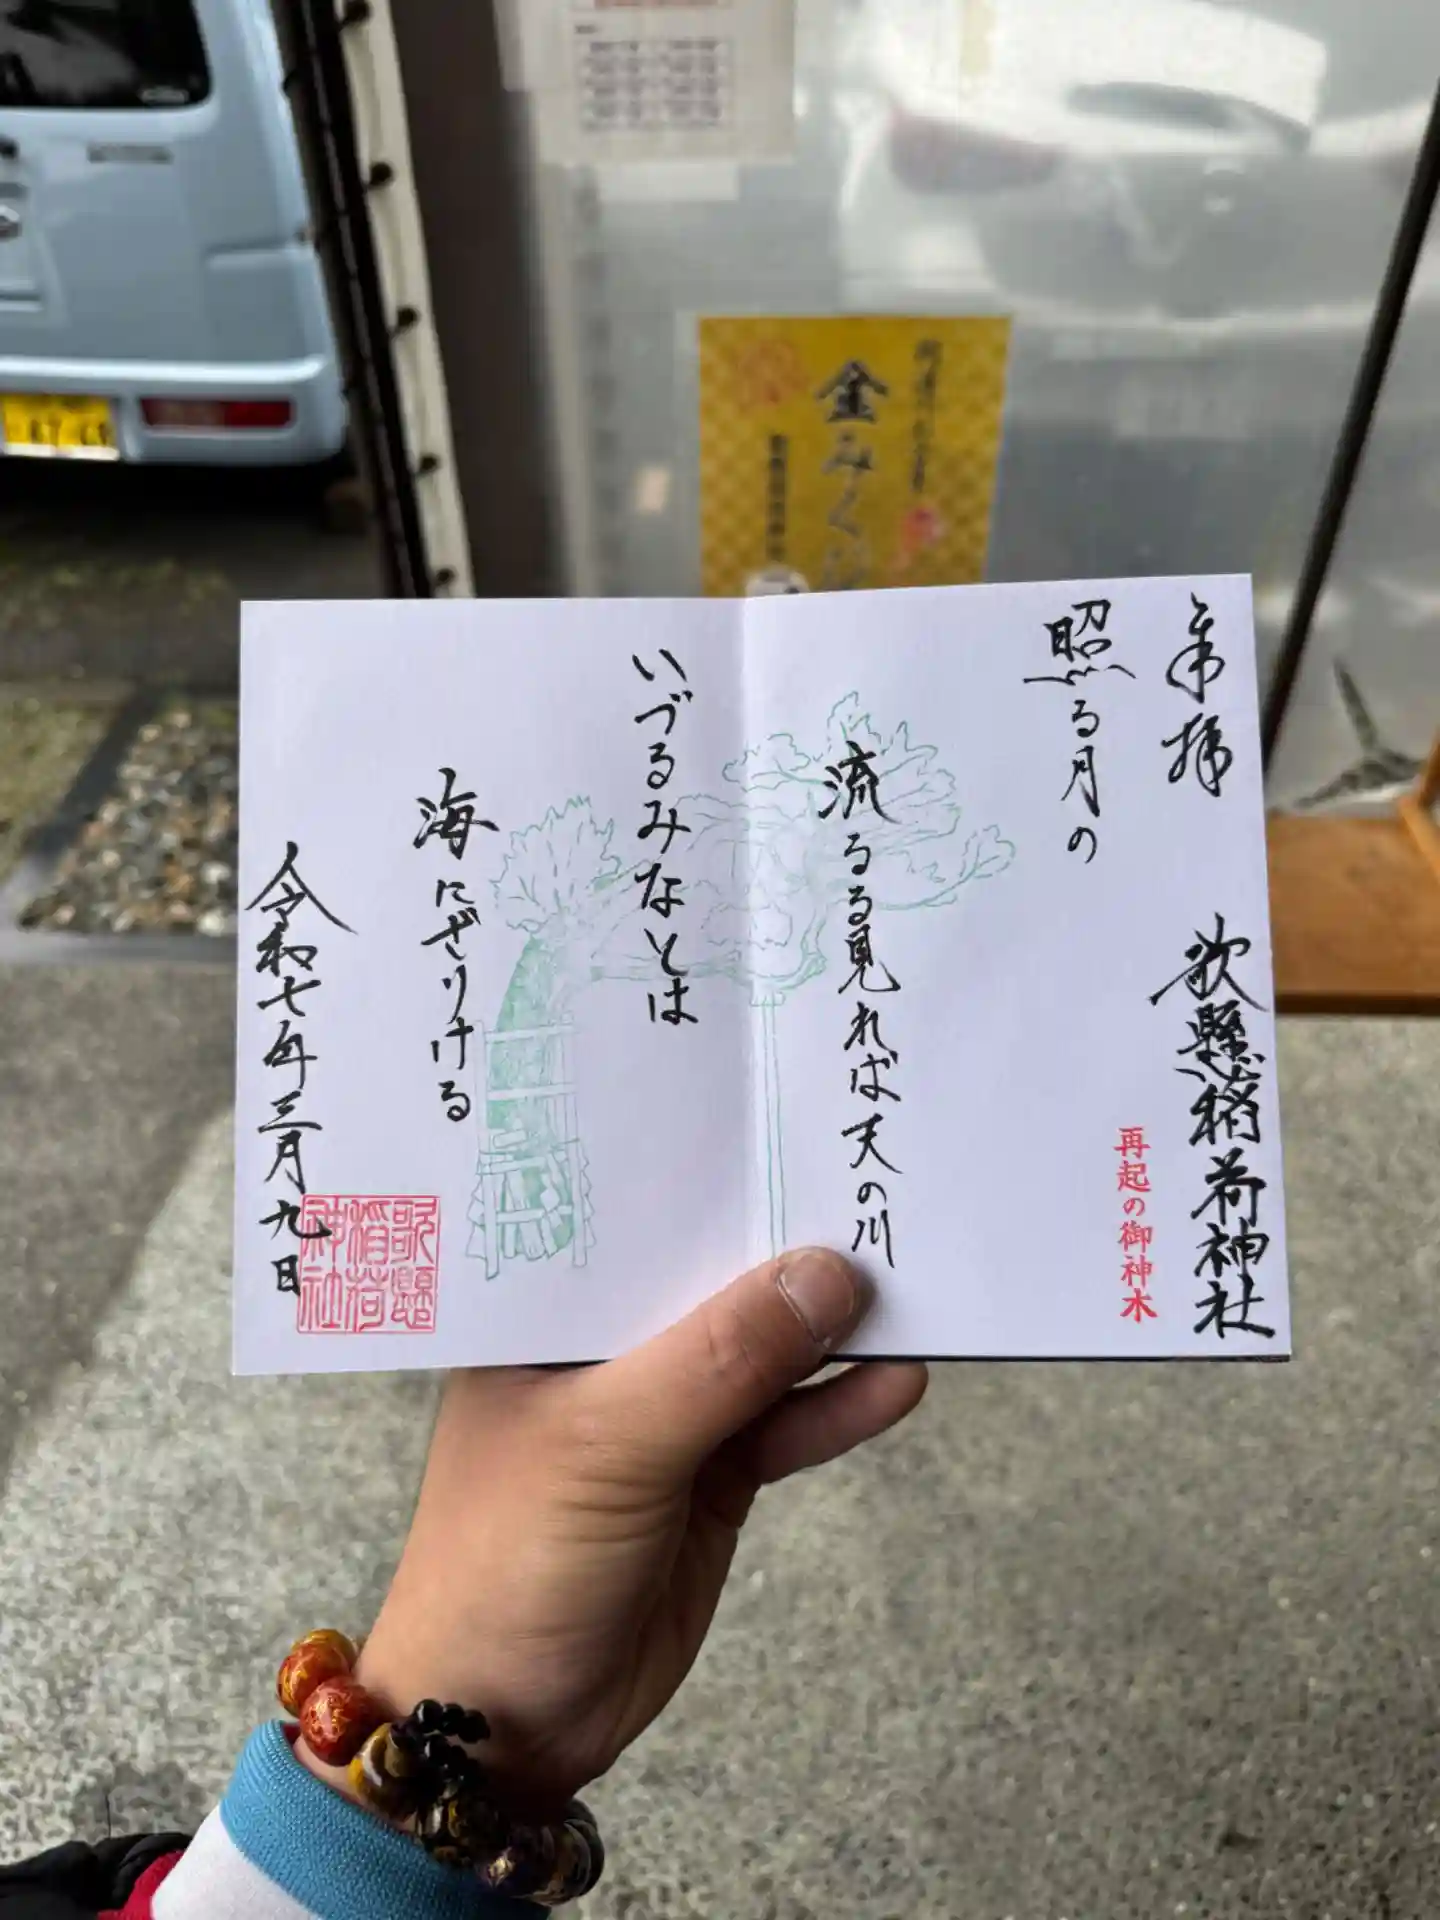 奉拝
歌懸稲荷神社
再起の御神木
照る月の
流るる見れば天の川
いづるみなとは
海にざりける
令和七年三月九日
歌懸
稲荷
神社
金みくじ